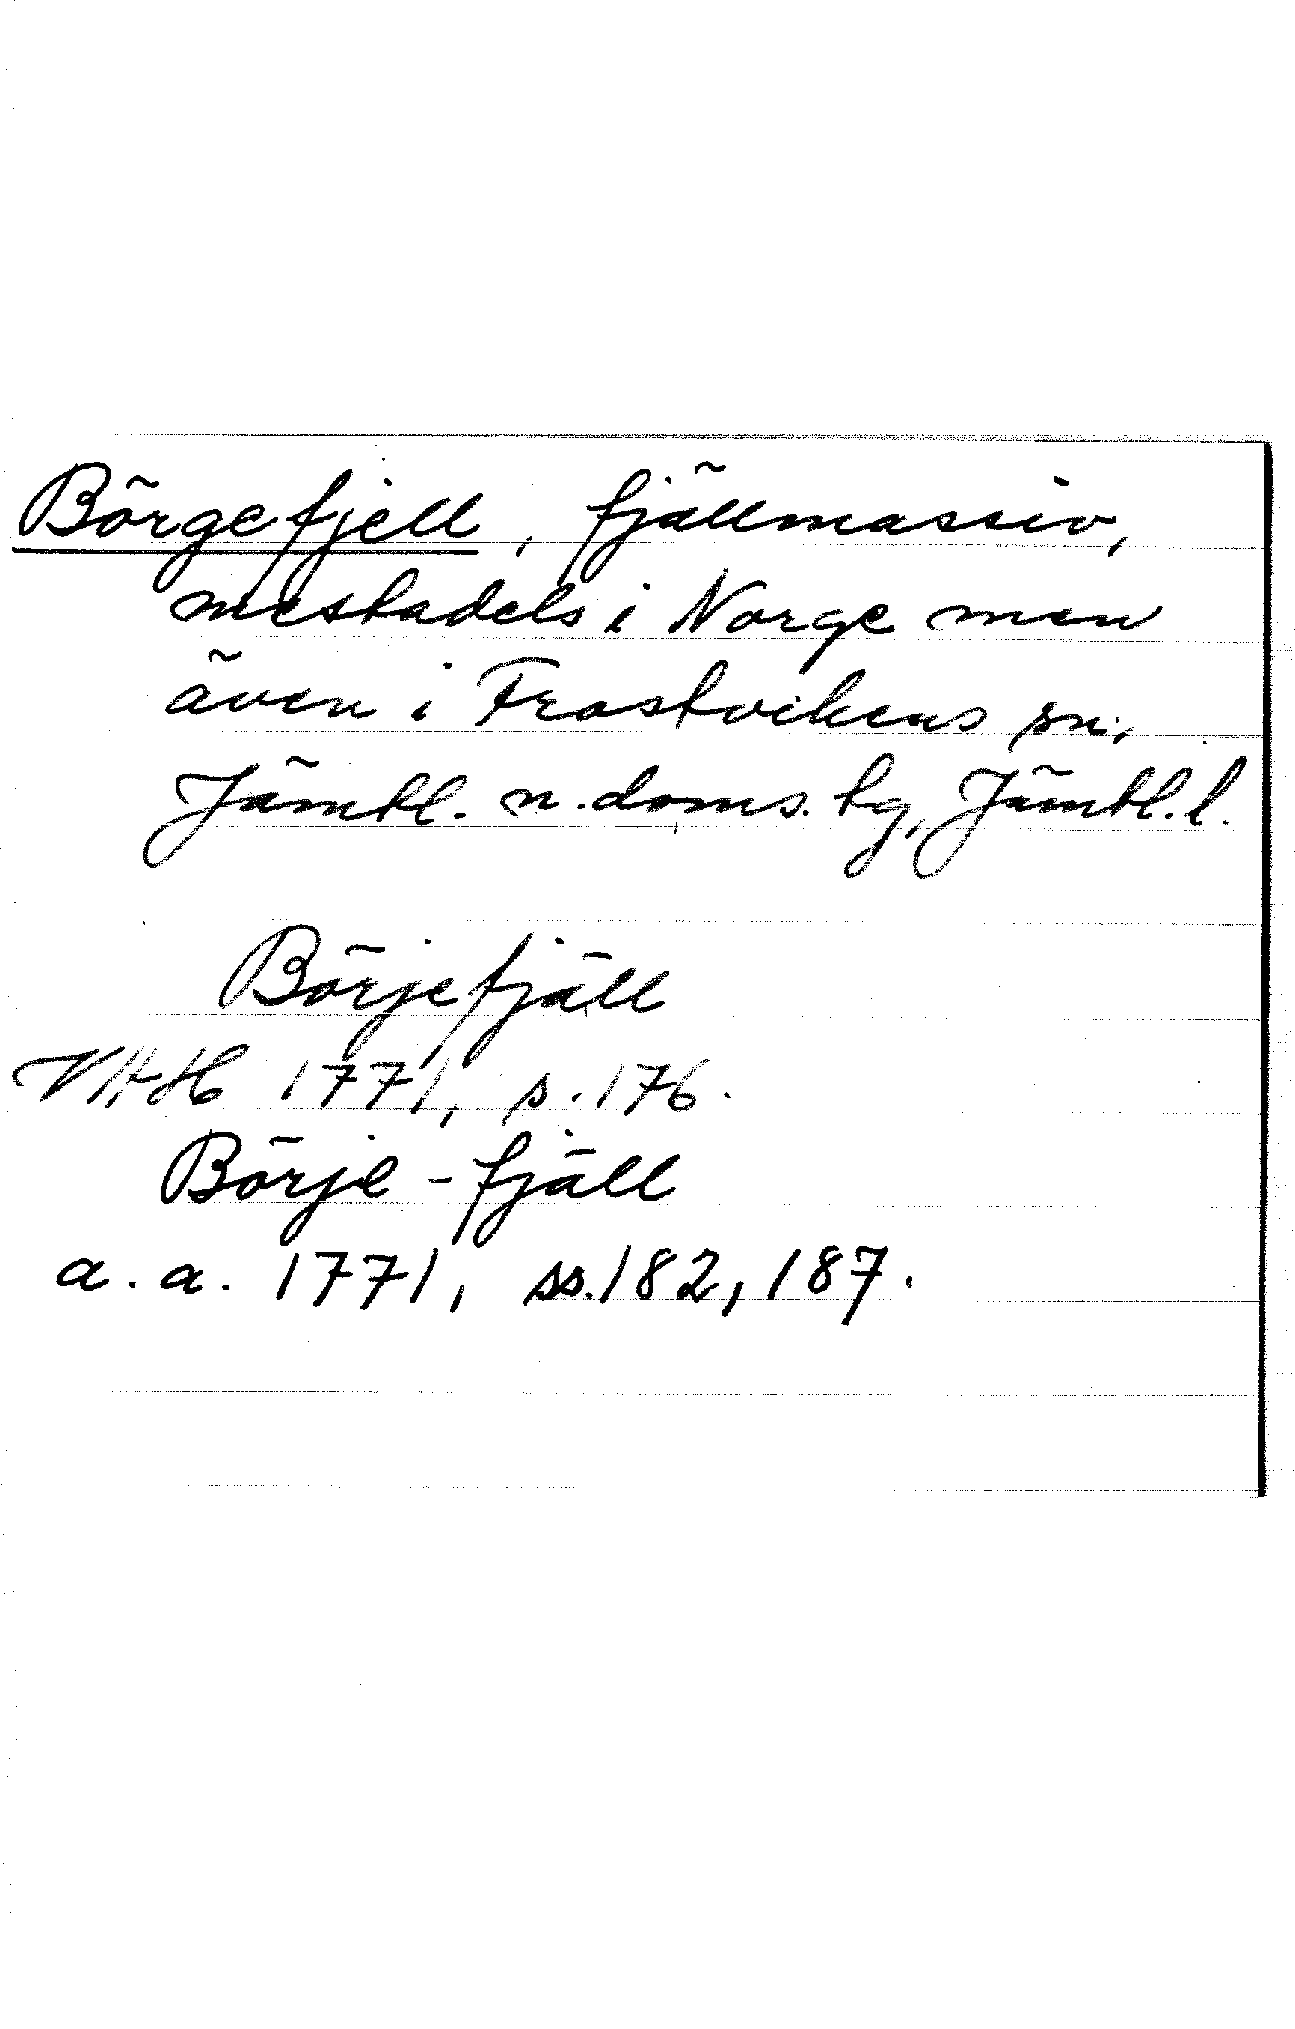 Börgefjell, fjällmassiv,
mestadels i Norge men
även i Frostvikens sn,
Jämtl. n. doms. tg, Jämtl. l.
Börjefjäll
VHH 1771, s. 176.
Börje-fjäll
a. a. 1771, ss. 182, 187.